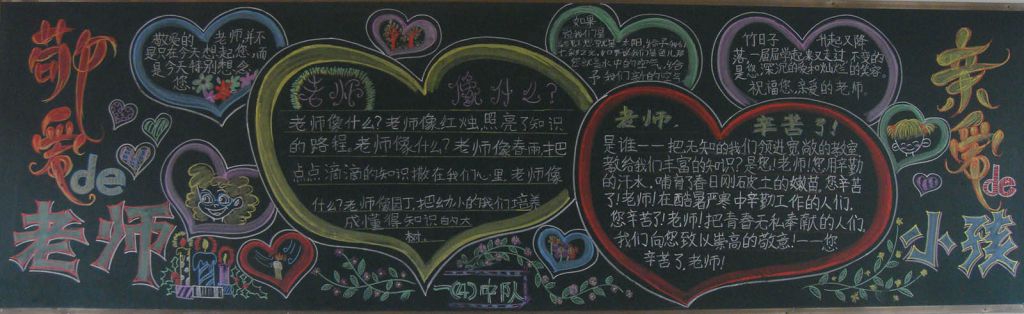 敬爱de
老师
敬爱的 老师并不
是只在今天想起您,而
是今天特别想念
您
老师像什么?
老师像什么?老师像红烛,照亮了知识
的路程,老师像什么?老师像春雨,把
点点滴滴的知识撒在我们心里,老师像
什么?老师像园丁,把幼小的我们培养
成懂得知识的大
树.
如果
说我们是
予我们新的空气
老师,辛苦了!
是谁——把无知的我们领进宽敞的教室
教给我们丰富的知识?是您!老师!您用辛勤
的汗水,哺育了春日刚破土的嫩苗,您辛苦
了!老师!在酷暑严寒中辛勤工作的人们,
您辛苦了!老师!把青春无私奉献的人们,
我们向您致以崇高的敬意!——您
辛苦了,老师!
竹日子 升起又降
落,一届届学起来又走过,不变的
是您深沉的爱和灿烂的笑容。
祝福您,亲爱的老师。
亲爱de
小孩
一(4)中队